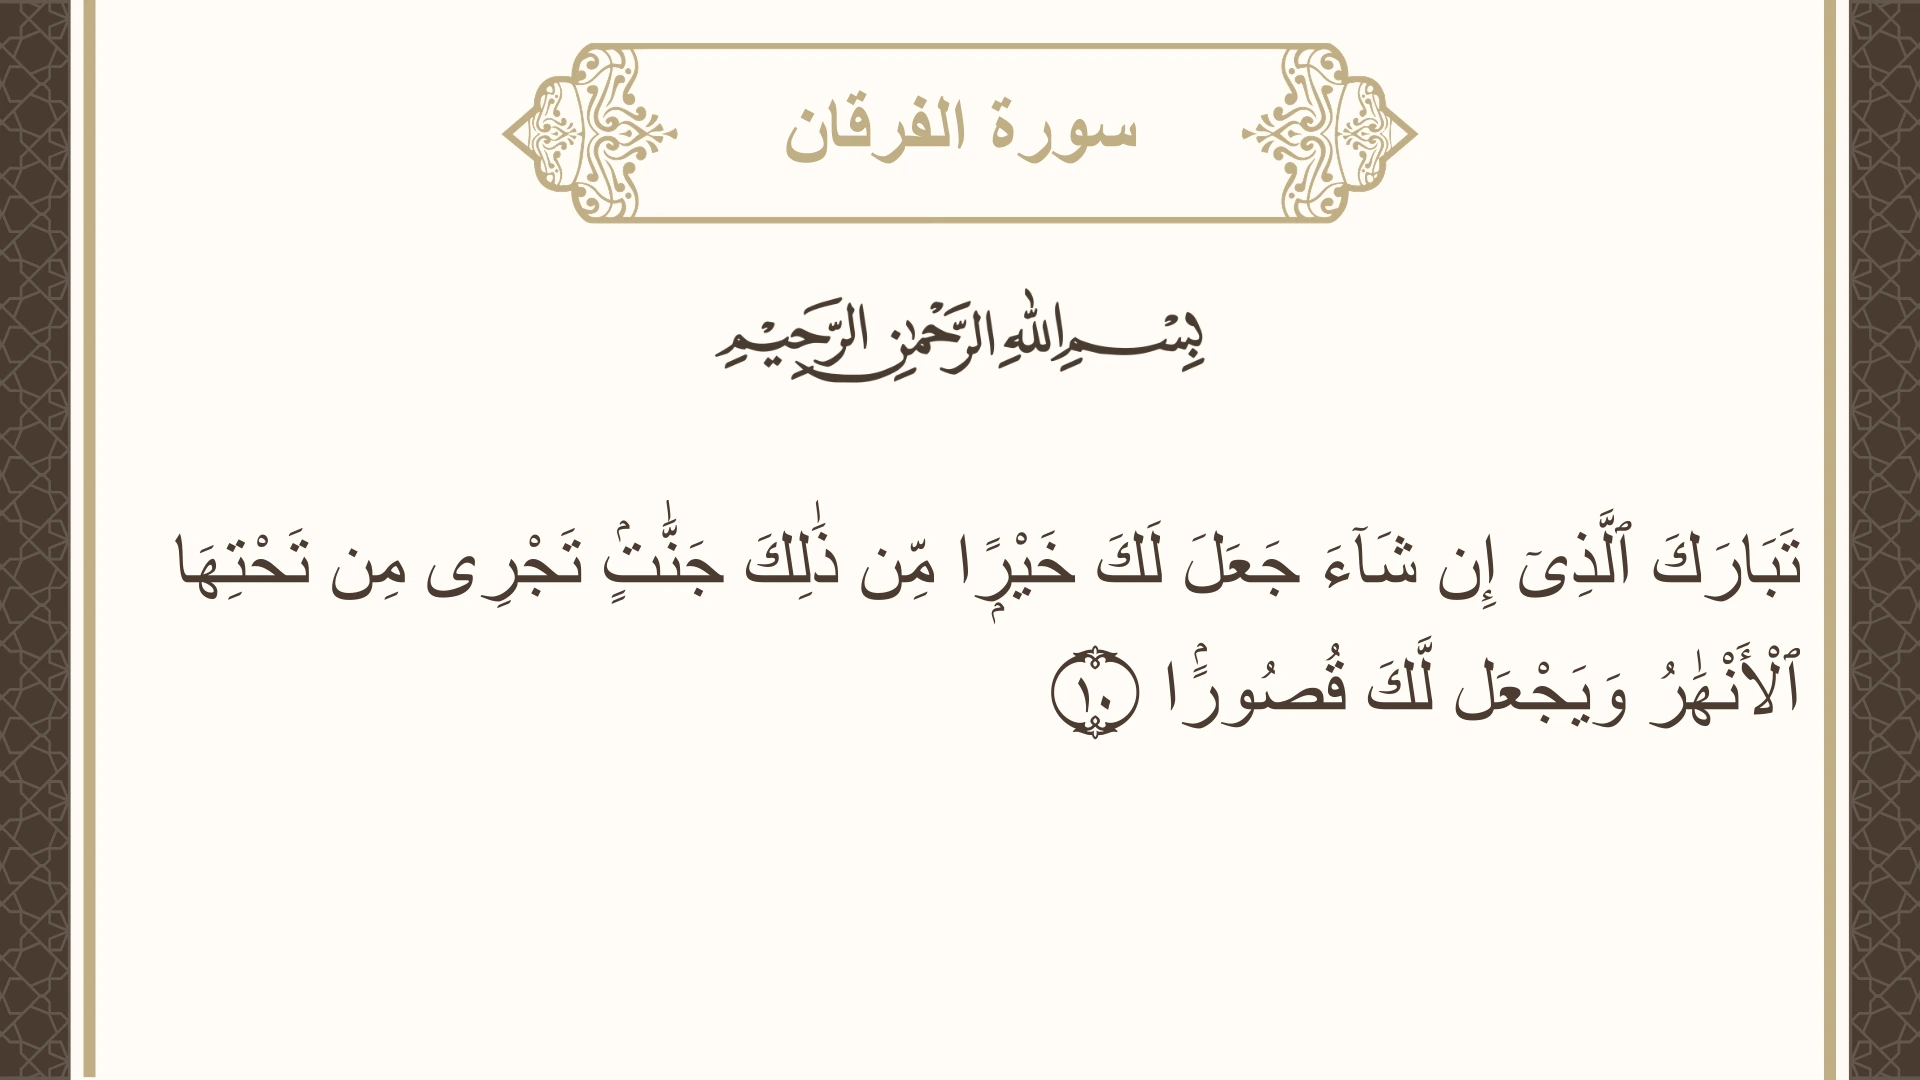 سورة الفرقان
بِسْمِ اللهِ الرَّحْمٰنِ الرَّحِيْمِ
تَبَارَكَ ٱلَّذِىٓ إِن شَآءَ جَعَلَ لَكَ خَيْرًۭا مِّن ذَٰلِكَ جَنَّٰتٍۢ تَجْرِى مِن تَحْتِهَا
ٱلْأَنْهَٰرُ وَيَجْعَل لَّكَ قُصُورًۢا ١٠